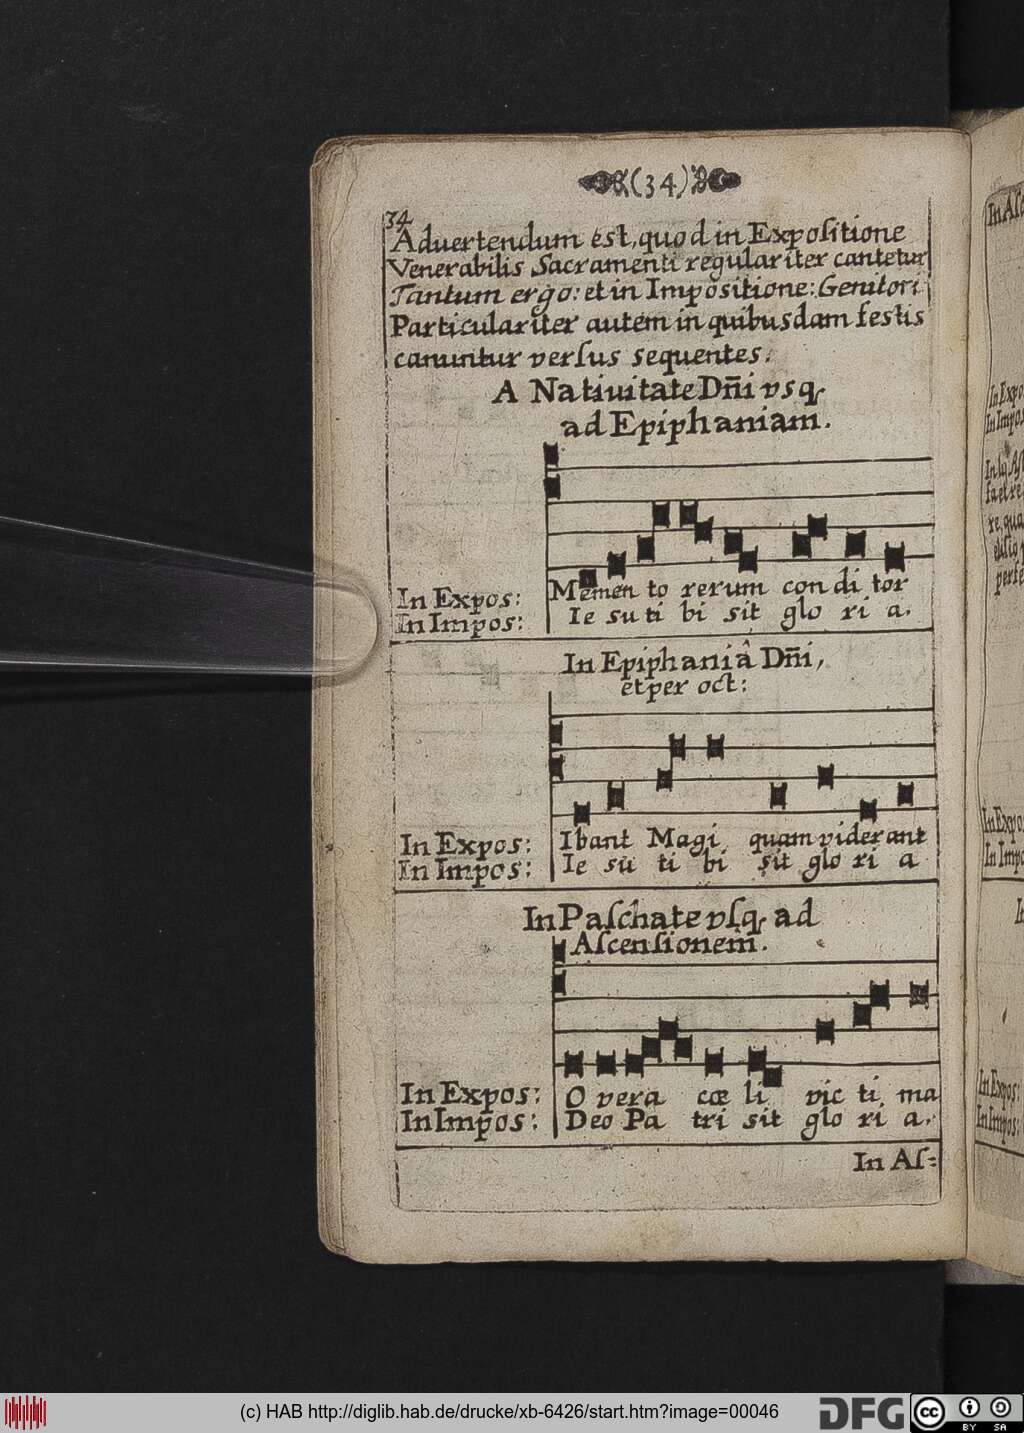 (34)
34
Aduertendum est, quod in Expoſitione
Venerabilis Sacramenti regulariter cantetur
Tantum ergo: et in Impositione: Genitori
Particulariter autem in quibusdam festis
canuntur verſus sequentes:
A Natiuitate Dñi vsq
ad Epiphaniam.
In Expos: Memen to rerum con di tor
In Impos: Ie su ti bi sit glo ri a.
In Epiphaniâ Dñi,
et per oct:
In Expos: Ibant Magi quam viderant
In Impos: Ie su ti bi sit glo ri a
In Paſchate vſq ad
Aſcenſionem.
In Expos: O vera cœ li vic ti ma
In Impos: Deo Pa tri sit glo ri a.
In Aſ=
In Expos:
In Impos:
(c) HAB http://diglib.hab.de/drucke/xb-6426/start.htm?image=00046
DFG
cc
BY SA